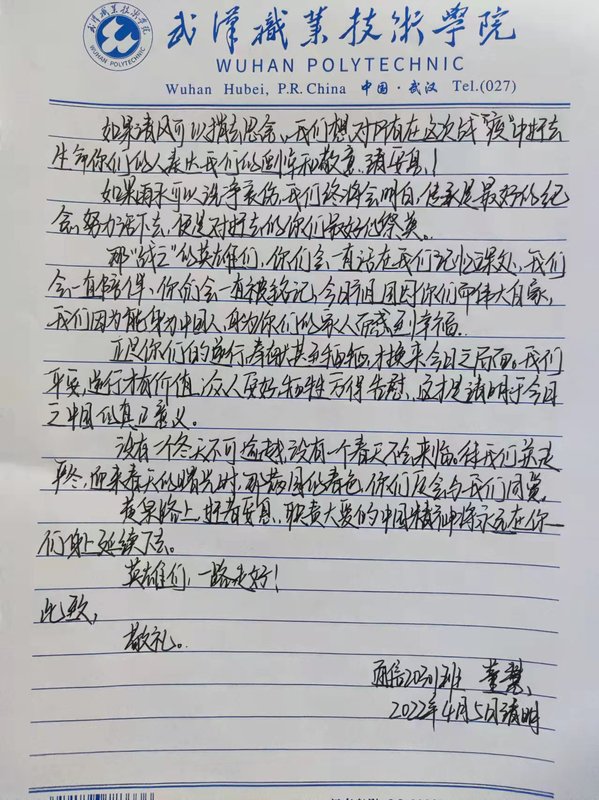 武漢職業技術學院
WUHAN POLYTECHNIC
Wuhan Hubei, P.R. China 中国·武汉 Tel.(027)
如果清风可以捎去思念,我们想对所有在这次战"疫"中好去
生命你们的人表达我们的哀悼和敬意,请安息!
如果雨水可以洗净哀伤,我们终将会明白,传承是最好的纪
念,努力活下去,便是对逝去的你们最好的祭奠。
那"战亡"的英雄们,你们会一直活在我们记忆深处,我们
会一直陪伴,你们会一直被铭记,今日祖国因你们而伟大自豪,
我们因为能身为中国人,身为你们的家人而感到幸福。
正是你们的逆行,奉献甚至牺牲,才换来今日之局面。我们
平安,逆行才有价值,众人更好,牺牲方得告慰,这才是清明于今日
之中国的真正意义。
没有一个冬天不可逾越,没有一个春天不会来临。待我们走
严冬,迎来春天的曙光时,那满园的春色,你们应会与我们同赏
黄泉路上,好有安息,职责大爱的中国精神将永远在你
们身上延续下去。
英雄们,一路走好!
此致,
敬礼。
商信2031班 董慧
2022年4月5日清明